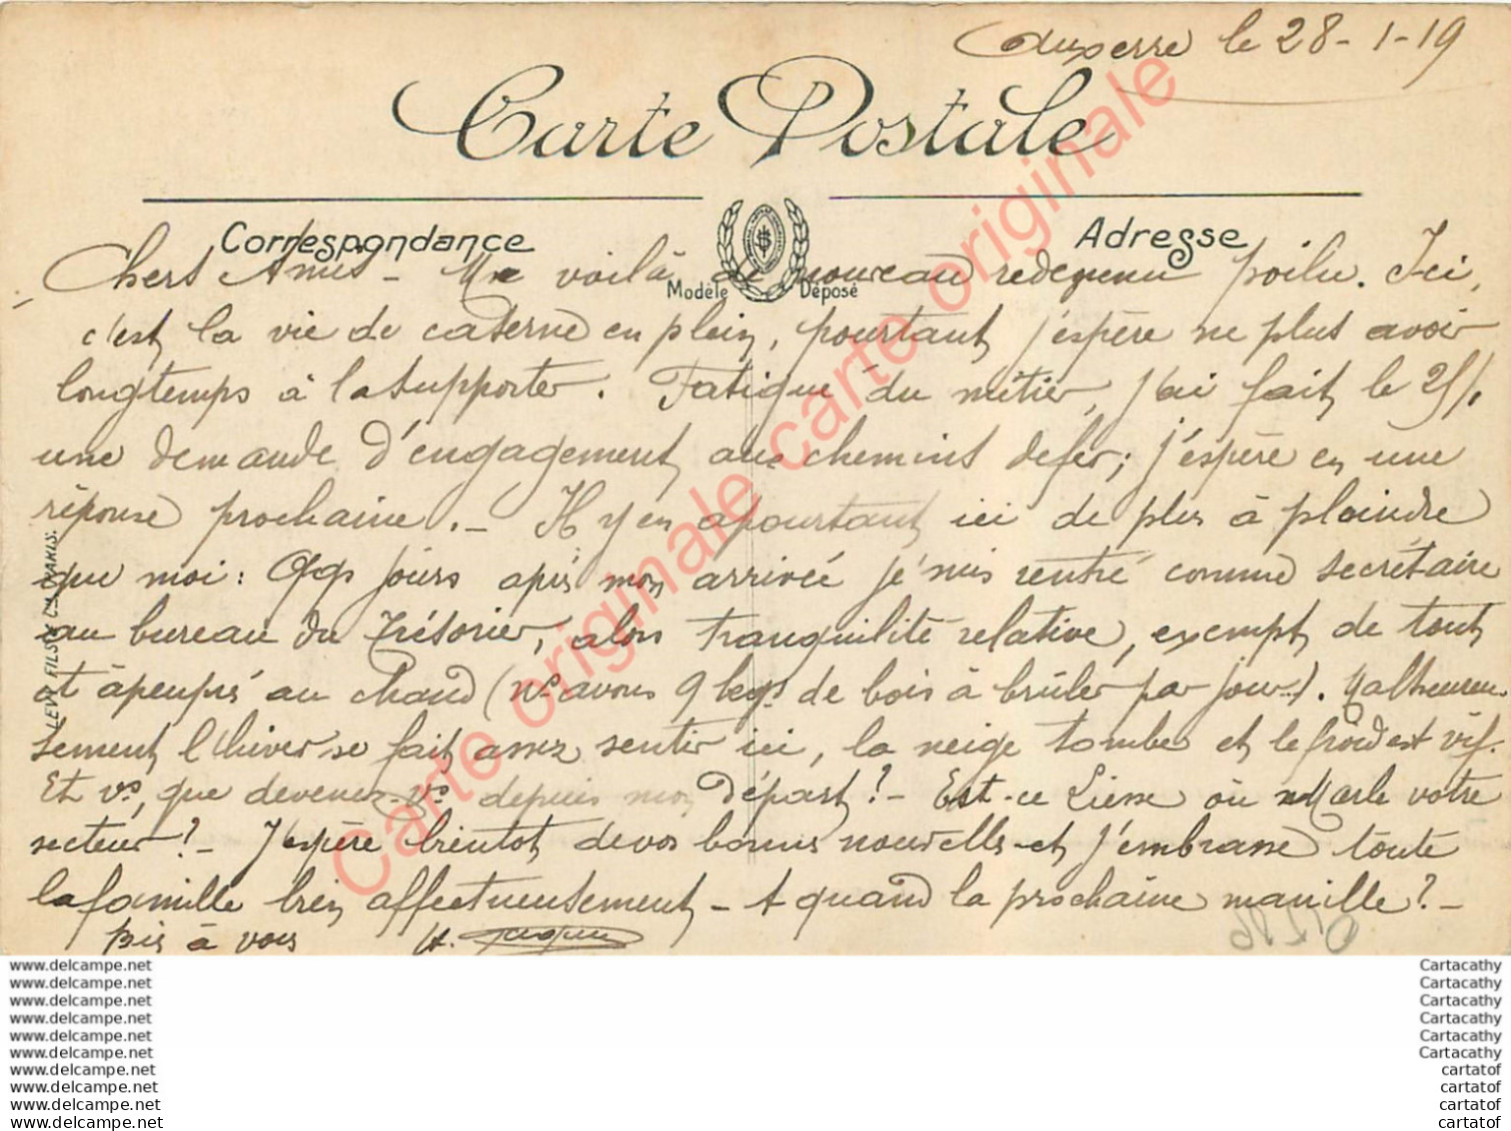 Auxerre le 28-1-19
Carte Postale
Correspondance
Adresse
Modèle Déposé
Chers Amis - Me voilà de nouveau redevenu poilu. Ici,
c'est la vie de caserne en plein, pourtant j'espère ne plus avoir
longtemps à la supporter. Fatigué du métier, j'ai fait le 25/1
une demande d'engagement aux chemins de fer; j'espère en une
réponse prochaine. - Il y en a pourtant ici de plus à plaindre
que moi: Qqs jours après mon arrivée je suis rentré comme secrétaire
au bureau du Trésorier, alors tranquilité relative, exempt de tout
et à peu près au chaud (Ns avons 9 kgs de bois à brûler par jour). Malheureu-
sement l'hiver se fait assez sentir ici, la neige tombe et le froid est vif.
Et vs, que devenez-vs depuis mon départ? - Est-ce Liesse ou Marle votre
secteur? - J'espère bientôt de vos bonnes nouvelles et j'embrasse toute
la famille bien affectueusement - A quand la prochaine manille? -
Bis à vous H.
LEVY FILS & Cie PARIS.
Carte originale carte originale carte originale
www.delcampe.net
www.delcampe.net
www.delcampe.net
www.delcampe.net
www.delcampe.net
www.delcampe.net
www.delcampe.net
www.delcampe.net
www.delcampe.net
www.delcampe.net
Cartacathy
Cartacathy
Cartacathy
Cartacathy
Cartacathy
Cartacathy
cartatof
cartatof
cartatof
cartatof